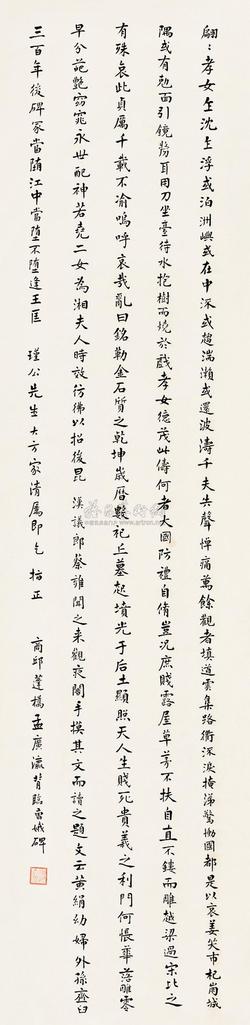 翩翩孝女乍沈乍浮或泊洲嶼或在中流或趨湍瀨或還波濤千夫失聲悼痛萬餘觀者填道雲集路衢流淚掩涕驚慟國都是以哀姜哭市杞崩城
隅或有剋面引鏡剺耳用刀坐臺待水抱樹而燒於戲孝女德茂此儔何者大國防禮自修豈況庶賤露屋草茅不扶自直不鏤而雕越梁過宋比之
有殊哀此貞厲千載不渝嗚呼哀哉亂曰銘勒金石質之乾坤歲曆數祀立墓起墳光于后土顯照天人生賤死貴義之利門何悵華落雕零
早分葩艷窈窕永世配神若堯二女為湘夫人時效彷彿以招後昆 漢議郎蔡雍聞之來觀夜闇手摸其文而讀之題文云黃絹幼婦外孫齏臼
三百年後碑冢當墮江中當墮不墮逢王叵 瑾公先生大方家清屬即乞 指正
商邱蓬橋孟廣瀛背臨曹娥碑